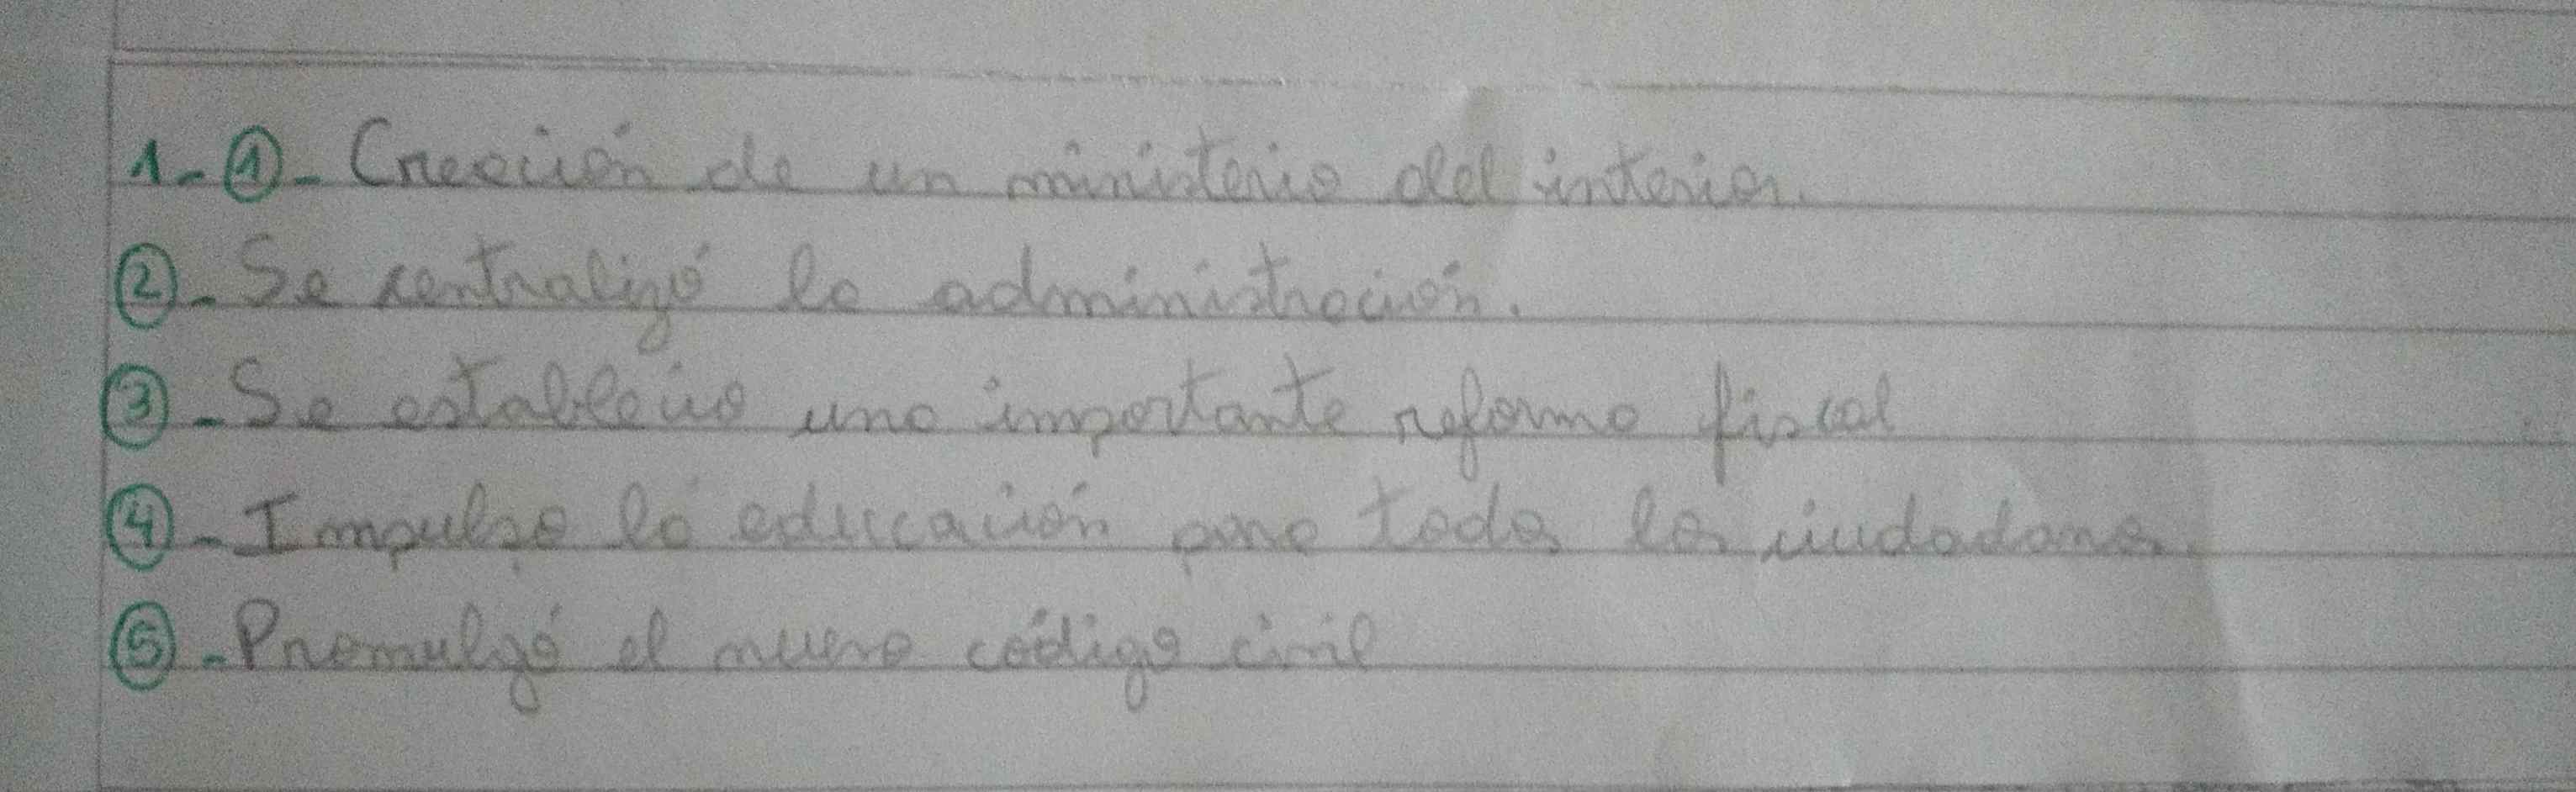 1-①- Creación de un ministerio del interior.
②- Se centralizó la administración.
③- Se establecio una importante reforma fiscal
④- Impulso la educación para todos los ciudadanos.
⑤- Promulgó el nuevo código civil